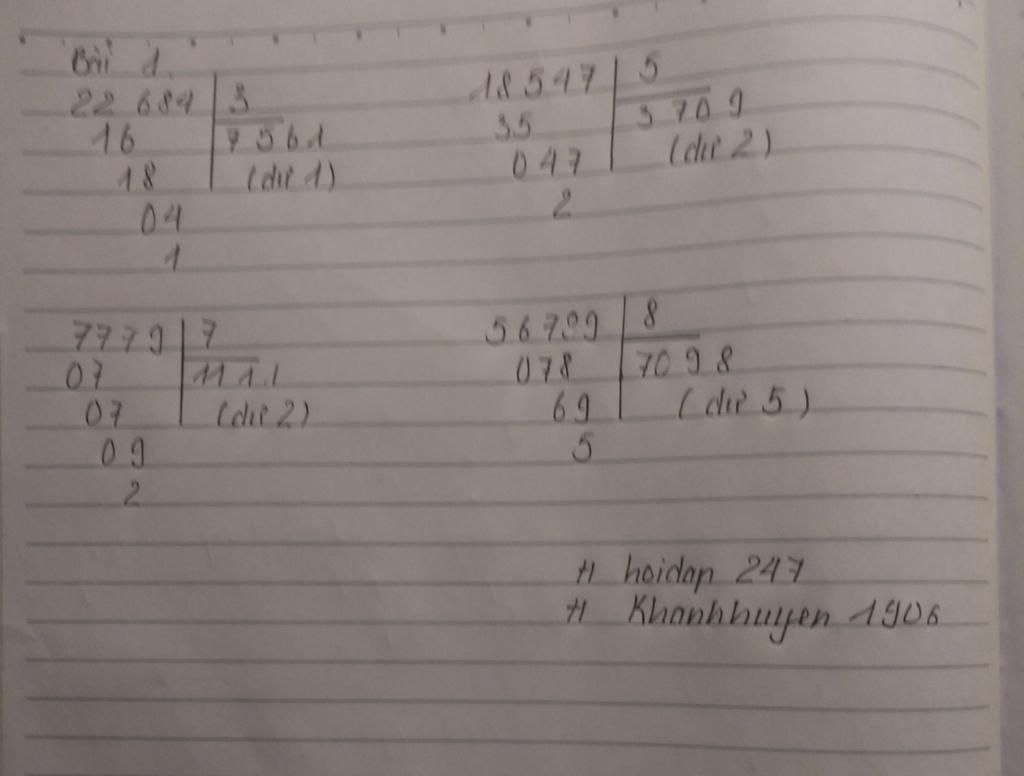 Bài 1.
22 684 3
16 7561
18 (dư 1)
04
1
18 547 5
35 3 709
047 (dư 2)
2
7779 7
07 1111
07 (dư 2)
09
2
56789 8
078 7098
69 (dư 5)
5
# hoidap 247
# Khanhhuyen 1906